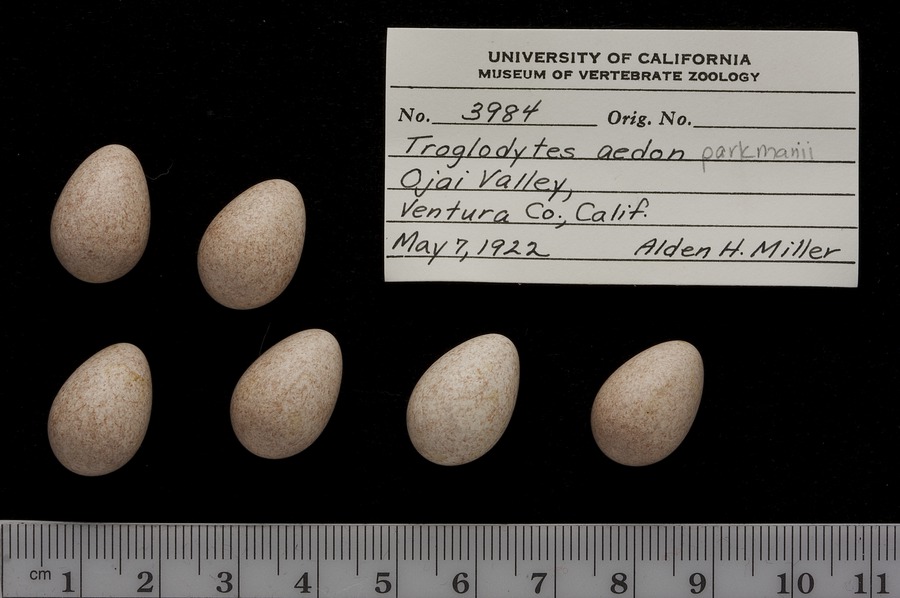 UNIVERSITY OF CALIFORNIA
MUSEUM OF VERTEBRATE ZOOLOGY
No. 3984 Orig. No.
Troglodytes aedon parkmanii
Ojai Valley,
Ventura Co., Calif.
May 7, 1922 Alden H. Miller
cm 1 2 3 4 5 6 7 8 9 10 11